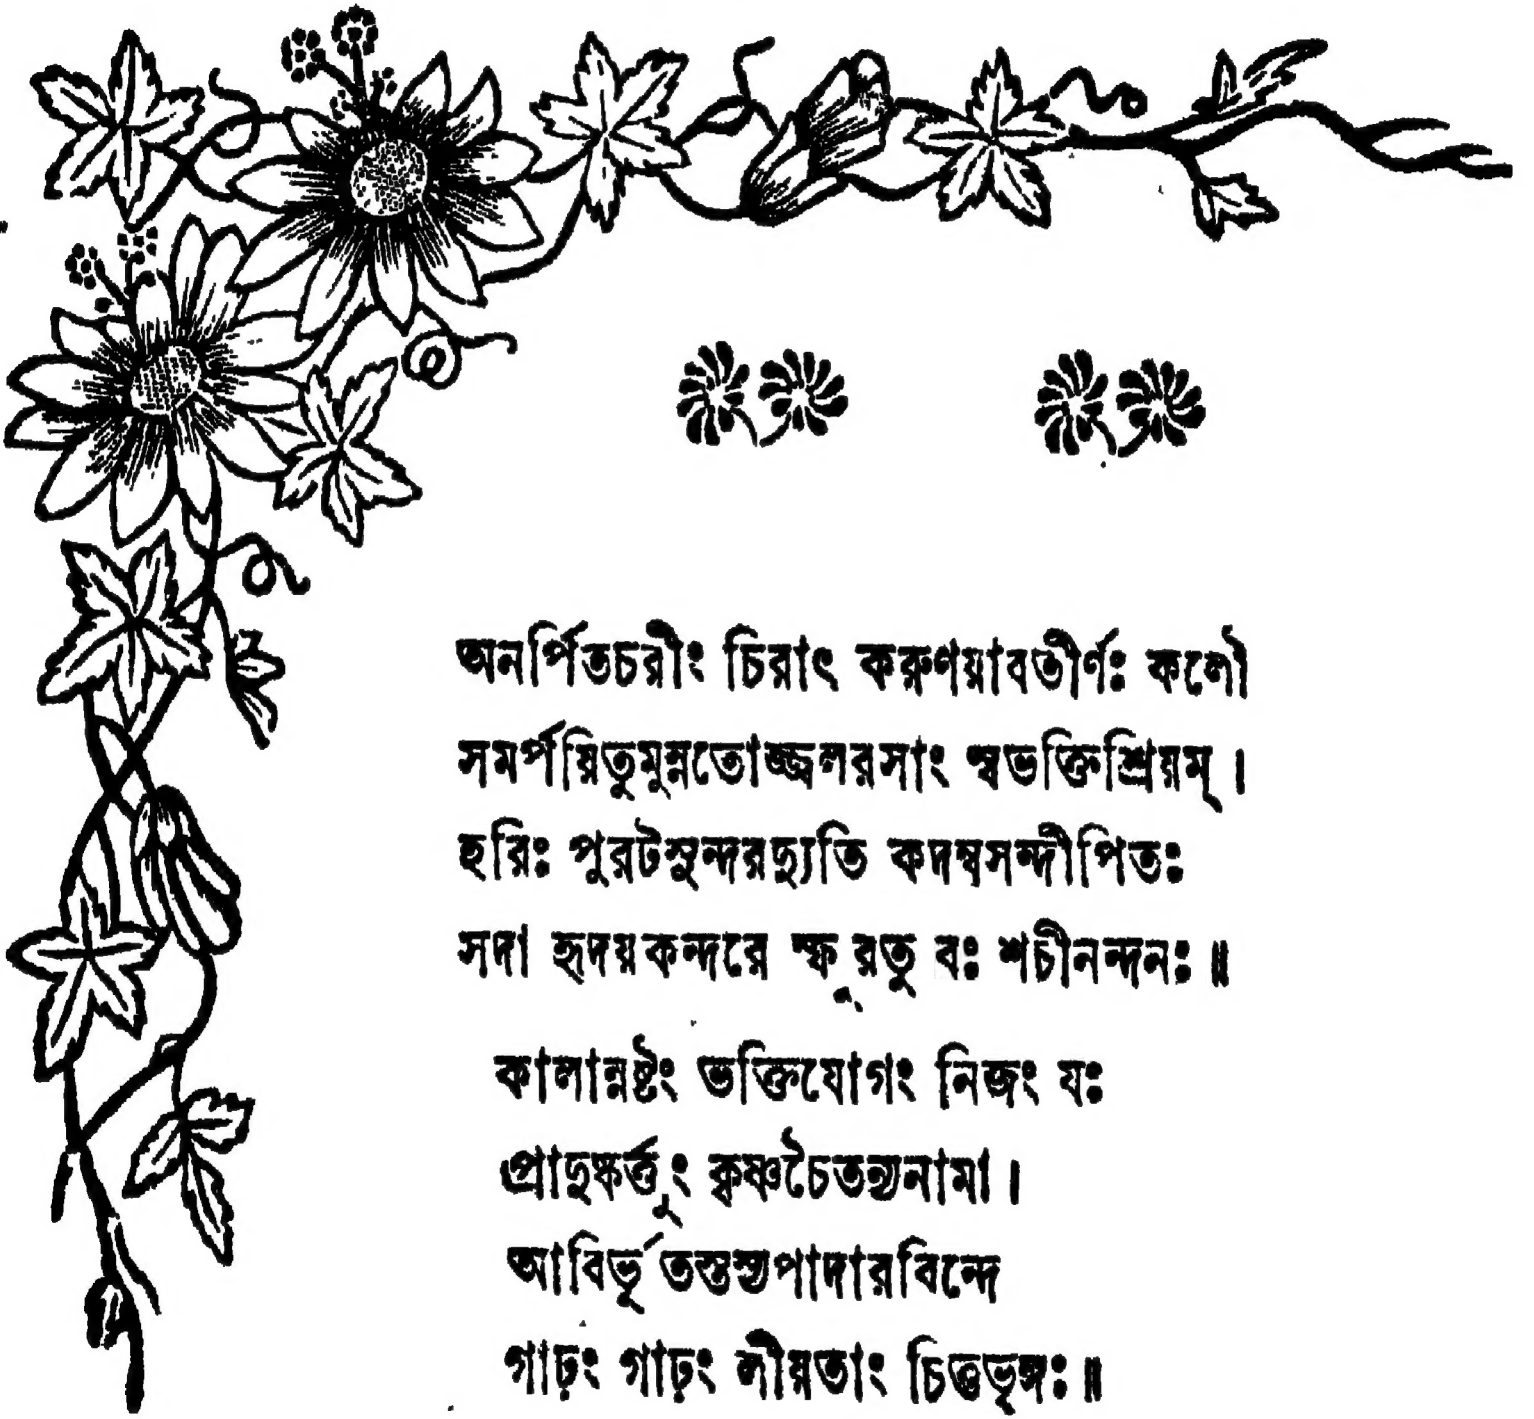 অনর্পিতচরীং চিরাৎ করুণয়াবতীর্ণঃ কলৌ
সমর্পয়িতুমুন্নতোজ্জ্বলরসাং স্বভক্তিশ্রিয়ম্।
হরিঃ পুরটসুন্দরদ্যুতি কদম্বসন্দীপিতঃ
সদা হৃদয়কন্দরে স্ফুরতু বঃ শচীনন্দনঃ॥
কালান্নষ্টং ভক্তিযোগং নিজং যঃ
প্রাদুষ্কর্ত্তুং কৃষ্ণচৈতন্যনামা।
আবির্ভূতস্তস্যপাদারবিন্দে
গাঢ়ং গাঢ়ং লীয়তাং চিত্তভৃঙ্গঃ॥